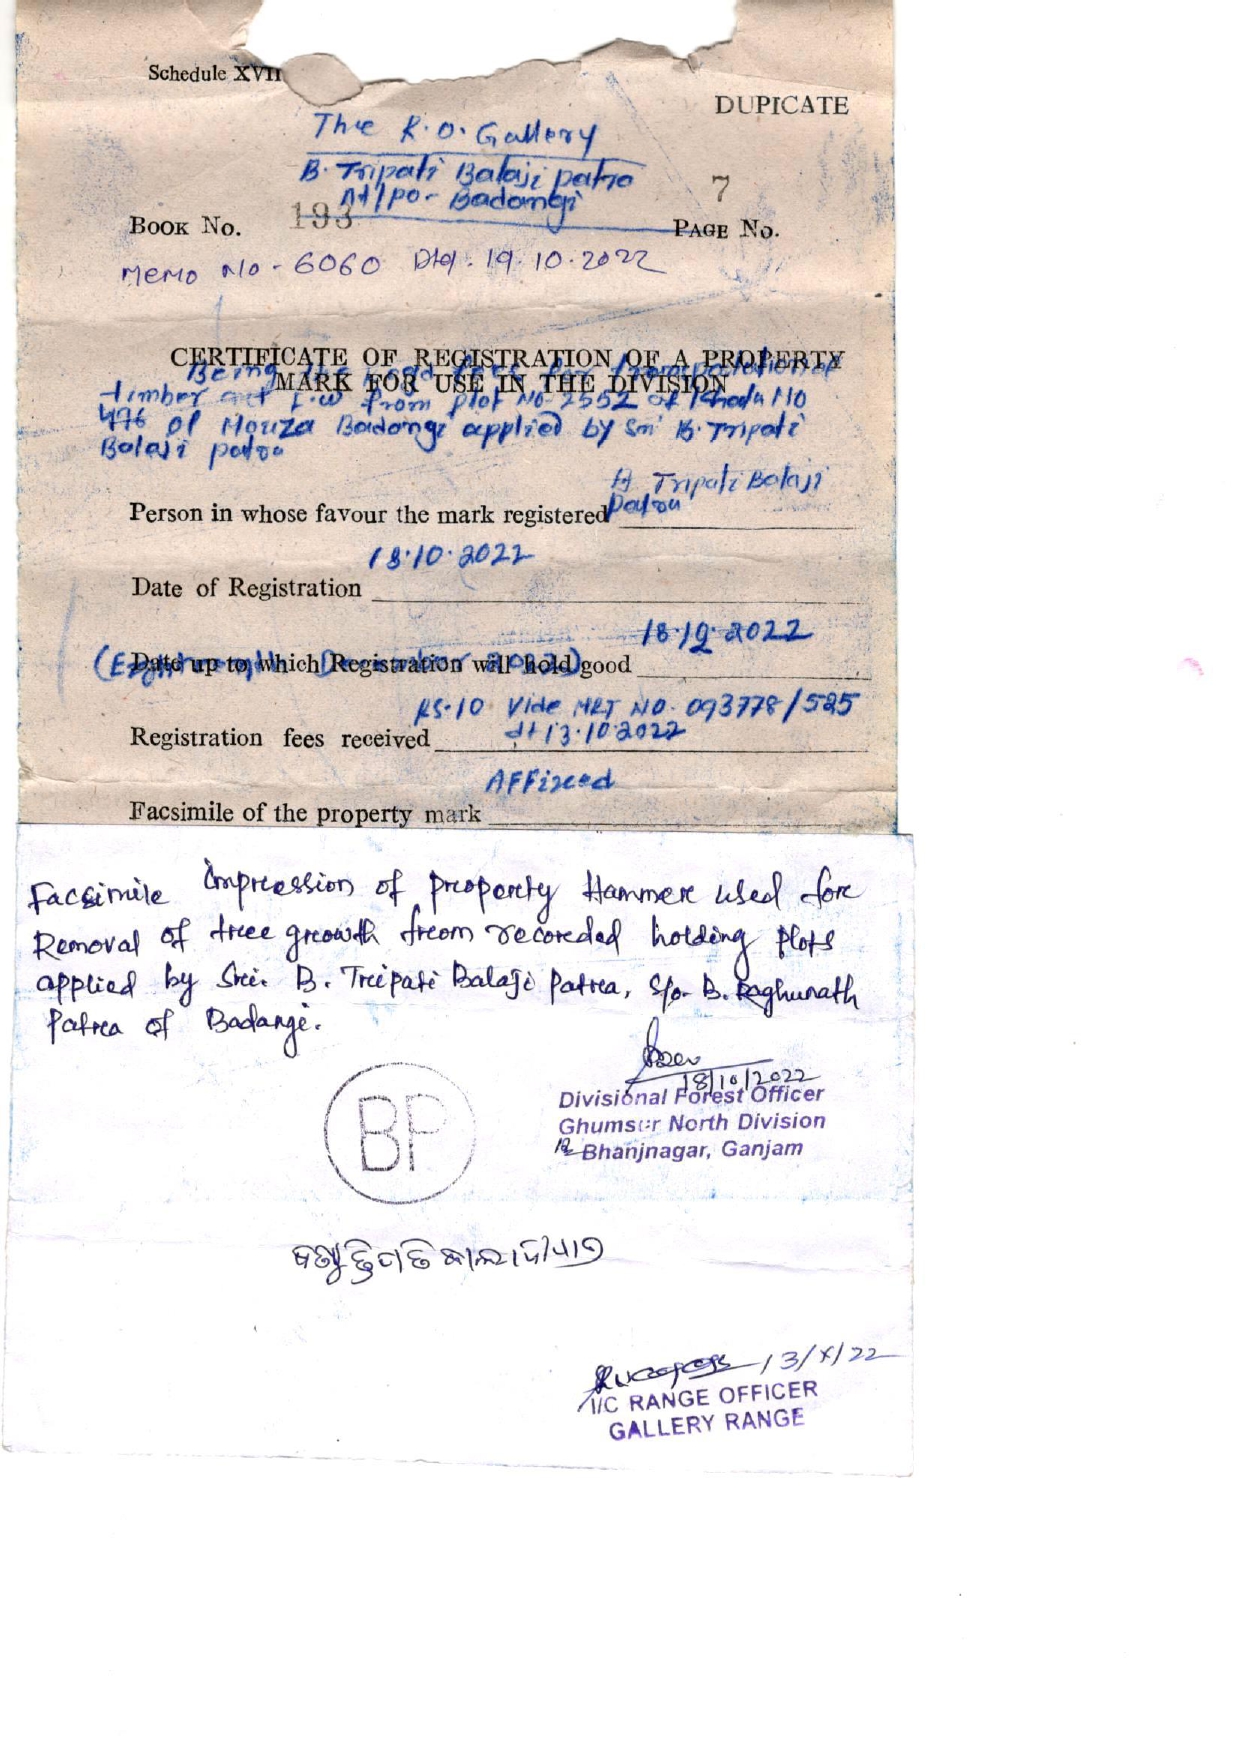 Schedule XVII
DUPICATE
The R.O. Gallery
B. Tripati Balaji patro
At/po- Badangi
7
BOOK No. 193
PAGE No.
Memo No - 6060 Dtd. 19.10.2022
CERTIFICATE OF REGISTRATION OF A PROPERTY
MARK FOR USE IN THE DIVISION
Being the
timber from plot No-2552 of Khada No
476 of Mouza Badangi applied by Sri B. Tripati
Balaji patra
Tripati Balaji
Patra
Person in whose favour the mark registered
18.10.2022
Date of Registration
18.12.2022
Date up to which Registration will hold good
RS.10 Vide MRT NO. 093778/525
Registration fees received dt 13.10.2022
AFFixed
Facsimile of the property mark
Facsimile Impression of property Hammer used for
Removal of tree growth from recorded holding plots
applied by Sri. B. Tripati Balaji Patra, S/o- B. Raghunath
Patra of Badangi.
18/10/2022
Divisional Forest Officer
Ghumsur North Division
Bhanjnagar, Ganjam
BP
13/X/22
I/C RANGE OFFICER
GALLERY RANGE